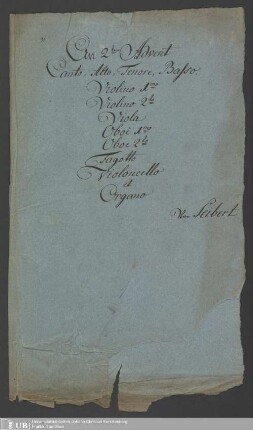 Am 2ten Advent
Canto, Alto, Tenore, Basso
Violino 1mo
Violino 2do
Viola
Oboi 1mo
Oboe 2do
Fagotto
Violoncello
et
Organo
Von Seibert
UB